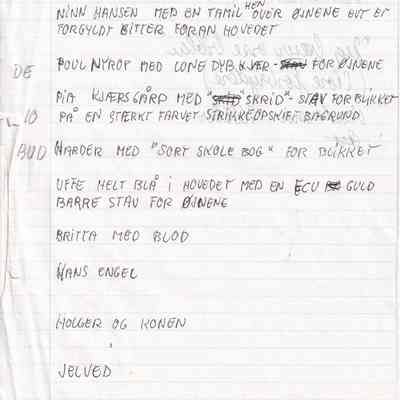 NINN HANSEN MED EN TAMIL HEN OVER ØJNENE EVT ET
FORGYLDT GITTER FORAN HOVEDET
DE
POUL NYROP MED LONE DYBKJÆR - STAV FOR ØJNENE
PIA KJÆRSGÅRD MED "SKRID" - STAV FOR BLIKKET
10
PÅ EN STÆRKT FARVET STRIKKEOPSKIFT BAGRUND
BUD
HARDER MED "SORT SKOLE BOG" FOR BLIKKET
UFFE HELT BLÅ I HOVEDET MED EN ECU GULD
BARRE STAV FOR ØJNENE
BRITTA MED BLOD
HANS ENGEL
HOLGER OG KONEN
JELVED